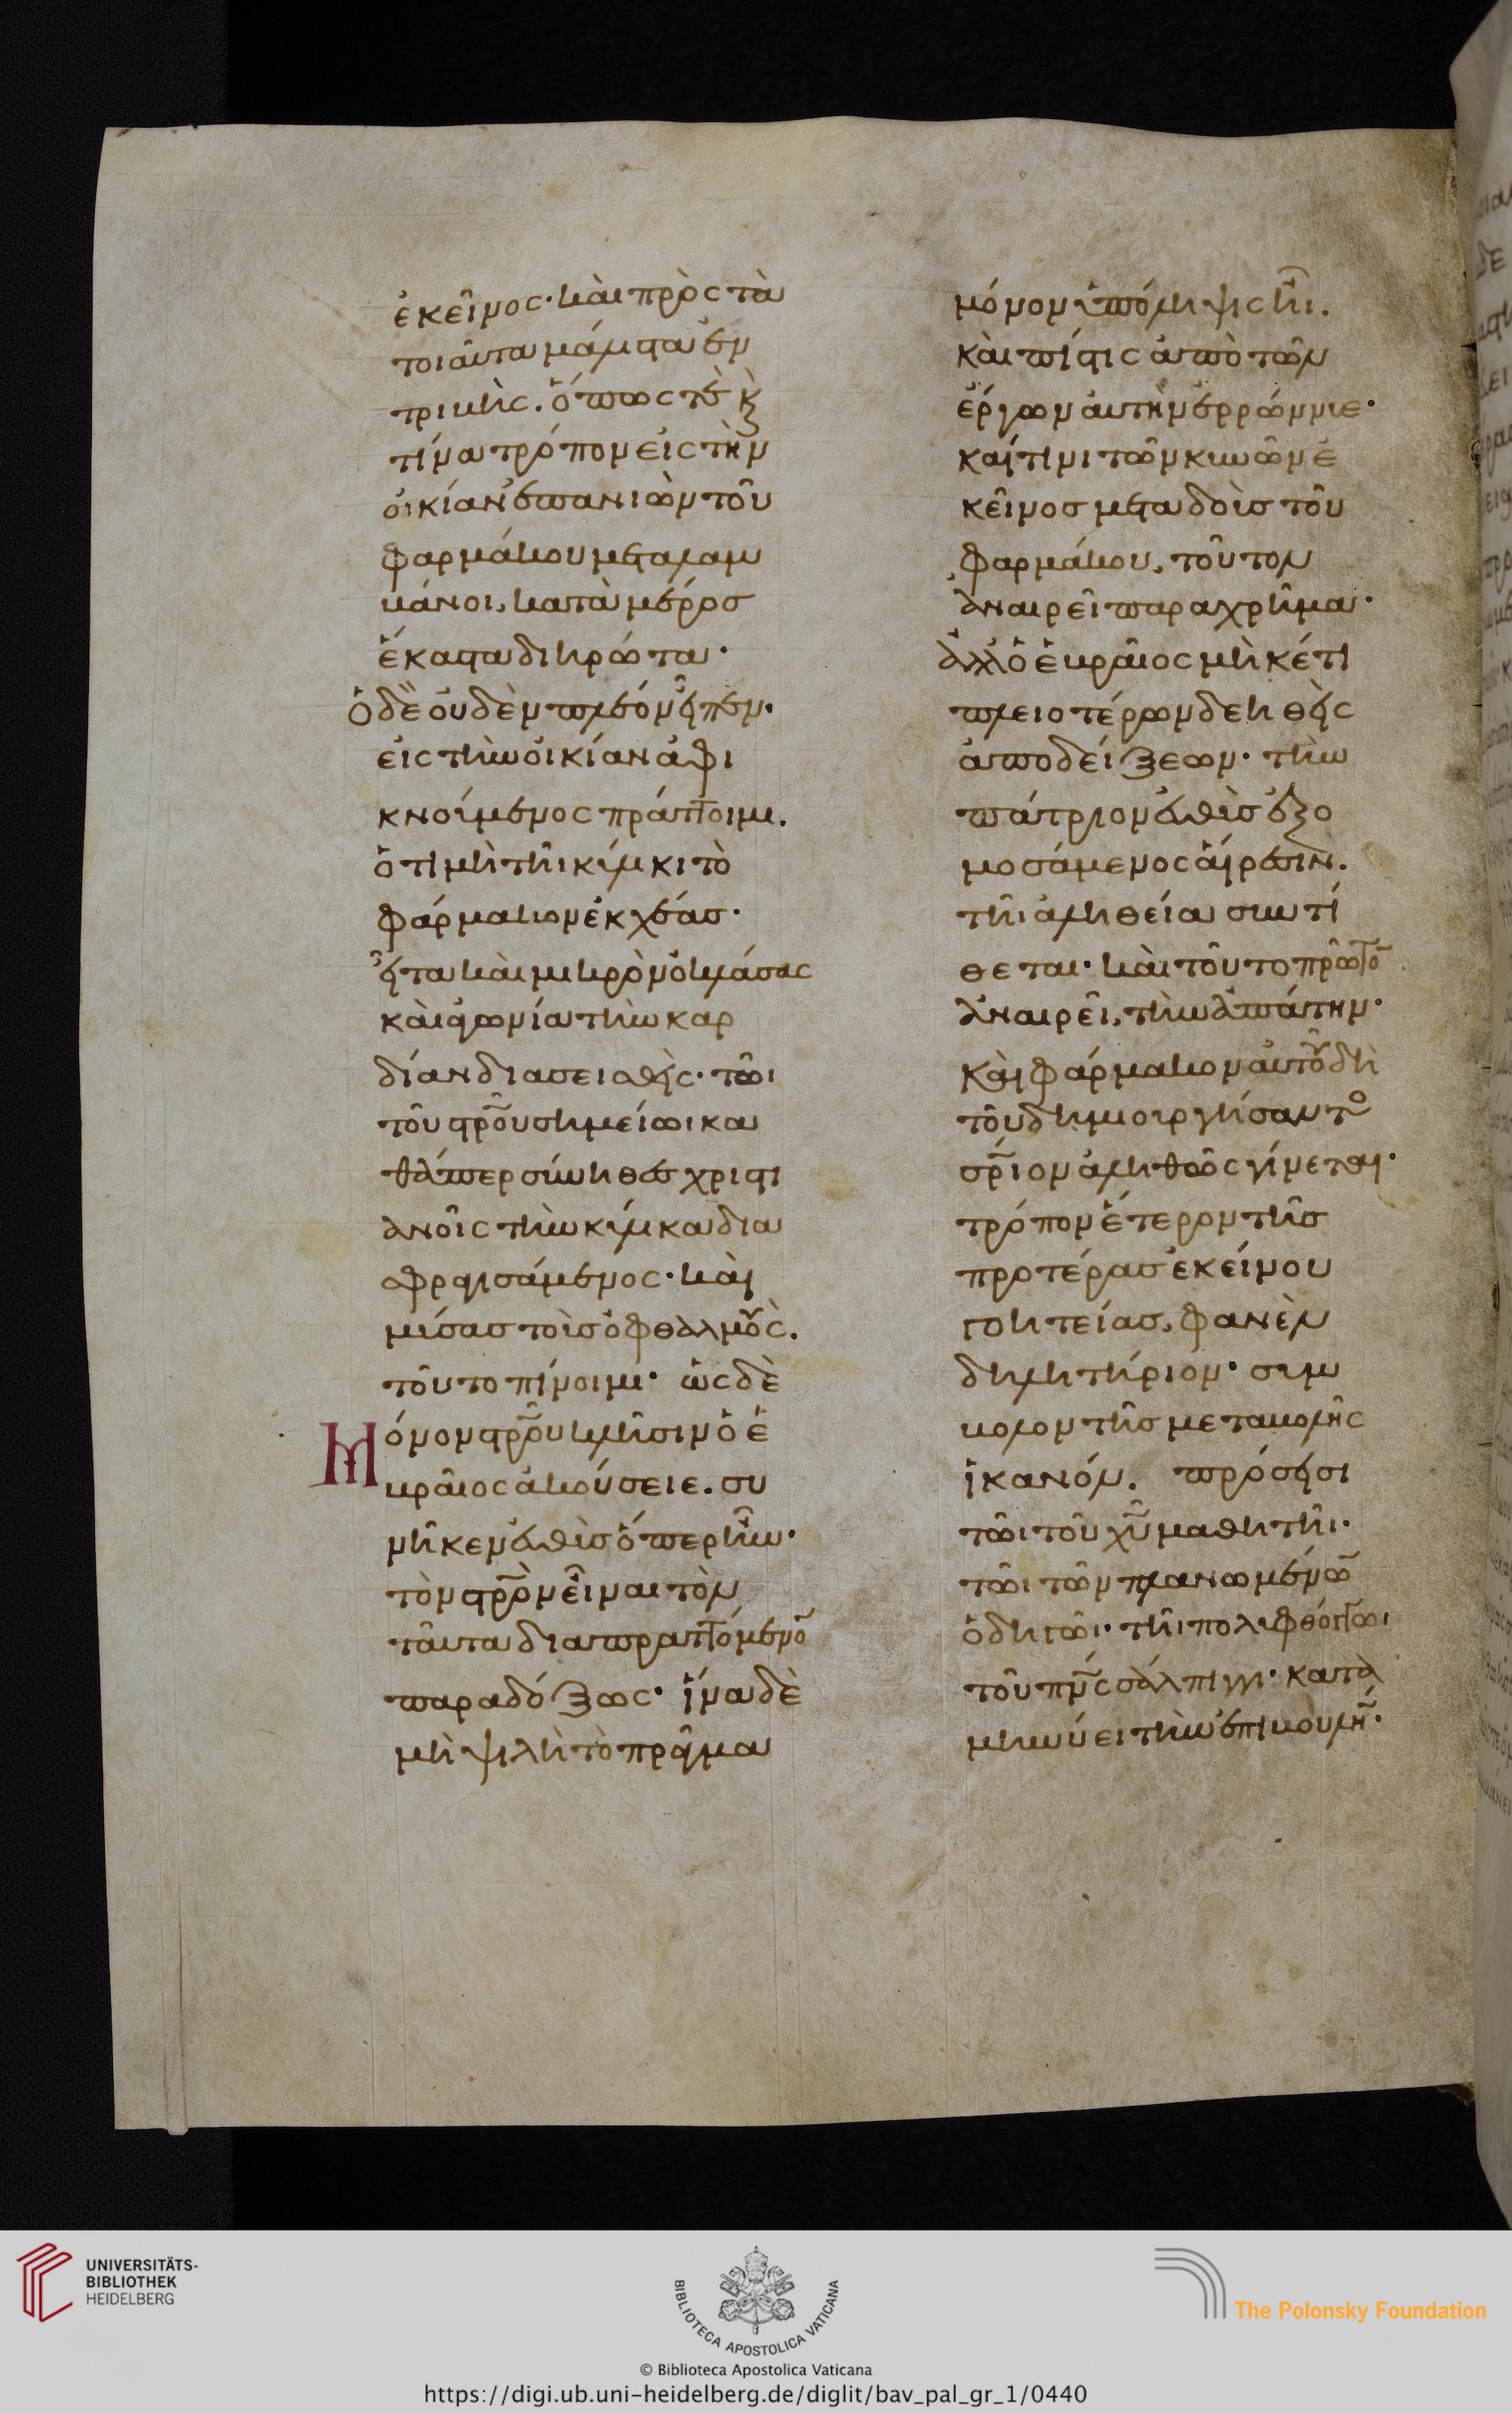 ἐκεῖνος· καὶ πρὸς τὰ
τοιαῦτα μάλιστα ἐν
τριβὴς. ὅπως τὲ κ(αὶ)
τίνα τρόπον εἰς τὴν
οἰκίαν ἐπανιὼν τοῦ
φαρμάκου μεταλαμ
βάνοι, κατὰ μέρος
ἕκαστα διηρώτα·
Ὁ δὲ οὐδὲν πλέον εἶπεν·
εἰς τὴν οἰκίαν ἀφι
κνούμενος πράττοιμι.
ὅτι μὴ τῆι κύλικι τὸ
φάρμακον ἐκχέας·
εἶτα καὶ μικρὸν ὀκλάσας
καὶ ἀγωνία τὴν καρ
δίαν διασεισθεὶς· τῶι
τοῦ σταυροῦ σημείωι κα
θάπερ σύνηθες χριστι
ανοῖς τὴν κύλικα δια
σφραγισάμενος· καὶ
μύσας τοὺς ὀφθαλμοὺς.
τοῦτο πίνοιμι· ὡς δὲ
Μόνον στροῦ κλῆσιν ὁ ἑ
βραῖος ἀκούσειε. συ
νῆκεν εὐθὺς ὅπερ ἦν·
τὸν στρὸν εἶναι τὸν
ταῦτα διαπραττόμενο
παραδόξως· ἵνα δὲ
μὴ ψιλὴ τὸ πρᾶγμα
μόνον ὑπόληψις ἦι.
καὶ πίστις ἀπὸ τῶν
ἔργων αὐτὴν ἐρρώννυε·
καί τινι τῶν κυνῶν ἐ
κεῖνος μεταδοὺς τοῦ
φαρμάκου, τοῦτον
ἀναιρεῖ παραχρῆμα·
Ἀλλ' ὁ ἑβραῖος μηκέτι
πλειοτέρων δεηθεὶς
ἀποδείξεων· τὴν
πάτριον εὐθὺς ἐξο
μοσάμενος αἵρεσιν.
τῆι ἀληθεία συντί
θεται· καὶ τοῦτο πρῶτο
ἀναιρεῖ, τὴν ἀπάτην·
Καὶ φάρμακον αὐτοῦ δὴ
τοῦ δημιουργήσαντο
σριον ἀληθῶς γίνεται·
τρόπον ἕτερον τῆς
προτέρας ἐκείνου
γοητείας, φανὲν
δηλητήριον· σύμ
βολον τῆς μεταβολῆς
ἱκανόν. πρόσεισι
τῶι τοῦ χυ μαθητῆι·
τῶι τῶν πλανωμένω
ὁδηγῶι· τῆι πολυφθόγγωι
τοῦ πνς σάλπιγγι· κατα
μηνύει τὴν ἐπιβουλὴ·
UNIVERSITÄTS-
BIBLIOTHEK
HEIDELBERG
BIBLIOTECA APOSTOLICA VATICANA
The Polonsky Foundation
© Biblioteca Apostolica Vaticana
https://digi.ub.uni-heidelberg.de/diglit/bav_pal_gr_1/0440